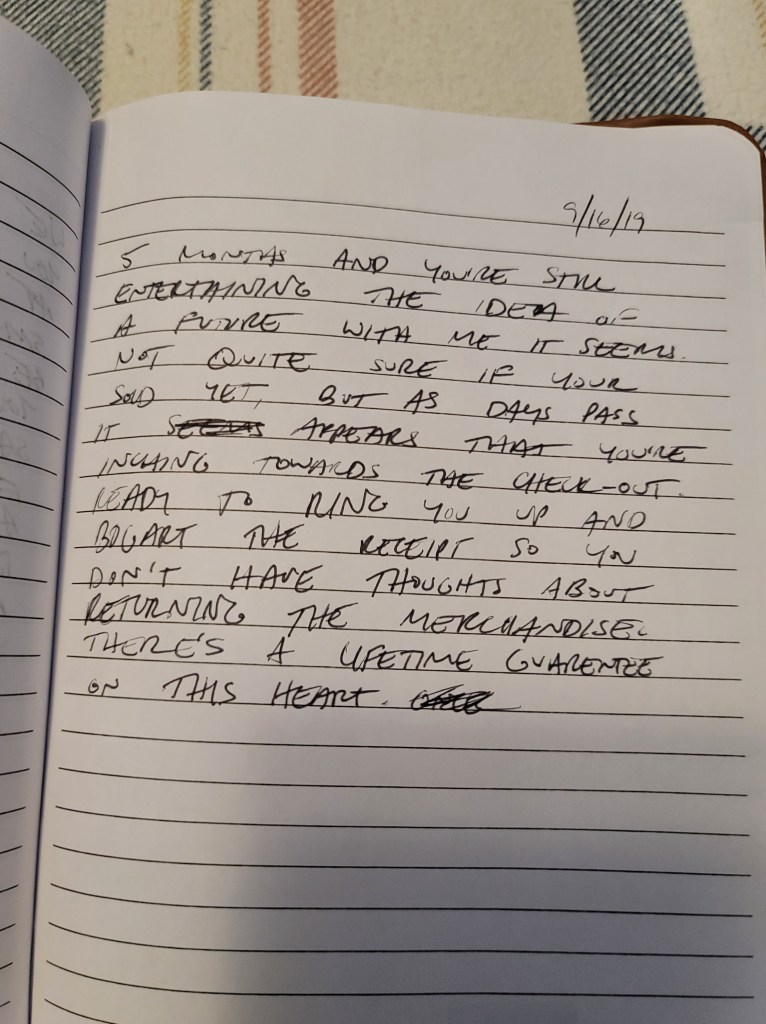 9/16/19
5 MONTHS AND YOU'RE STILL
ENTERTAINING THE IDEA OF
A FUTURE WITH ME IT SEEMS.
NOT QUITE SURE IF YOUR
SOLD YET, BUT AS DAYS PASS
IT SEEMS APPEARS THAT YOU'RE
INCHING TOWARDS THE CHECK-OUT.
READY TO RING YOU UP AND
BOGART THE RECEIPT SO YOU
DON'T HAVE THOUGHTS ABOUT
RETURNING THE MERCHANDISE.
THERE'S A LIFETIME GUARENTEE
ON THIS HEART.